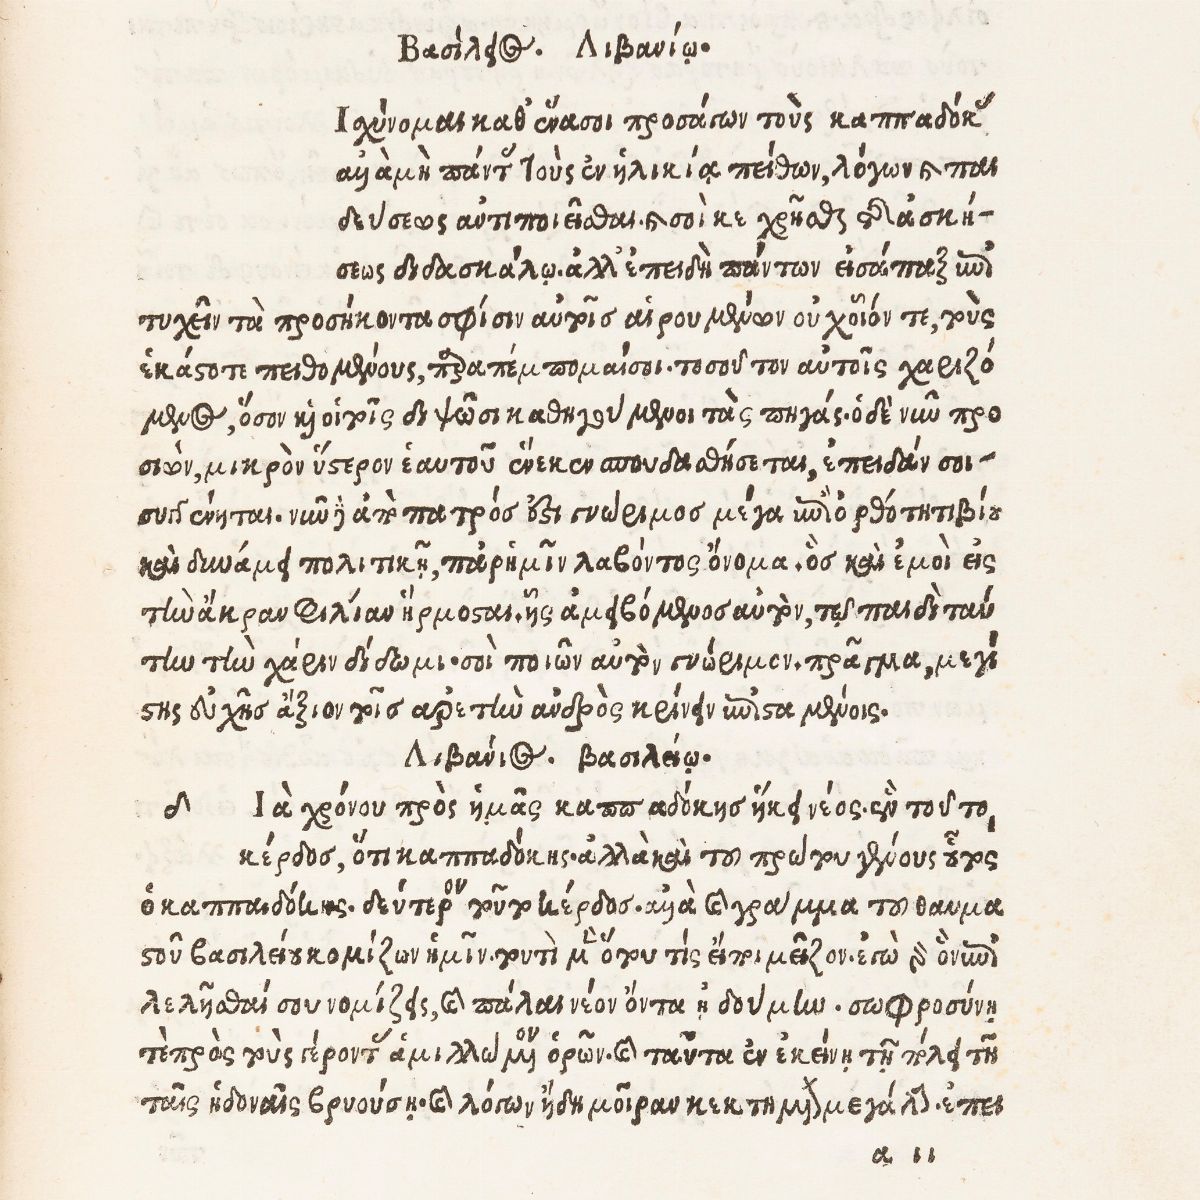 Βασίλειος. Λιβανίῳ.
Ισχύνομαι καθ' ἕνα σοι προσάγων τοὺς καππαδόκας
ἀλλὰ μὴ πάντας τοὺς ἐν ἡλικίᾳ πείθων, λόγων καὶ παι
δεύσεως ἀντιποιεῖσθαι. καὶ σοὶ κεχρῆσθαι τῆς ἀσκή-
σεως διδασκάλῳ. ἀλλ' ἐπειδὴ πάντων εἰσάπαξ ἐπι
τυχεῖν τὰ προσήκοντα σφίσιν αὐτοῖς αἱρουμένων οὐχ οἷόν τε, τοὺς
ἑκάστοτε πειθομένους, παραπέμπομαί σοι. τοσοῦτον αὐτοῖς χαριζό
μενος, ὅσον καὶ οἱ τοῖς διψῶσι καθηγούμενοι τὰς πηγάς. ὁ δὲ νῦν προ
σιὼν, μικρὸν ὕστερον ἑαυτοῦ ἕνεκεν σπουδασθήσεται, ἐπειδάν σοι-
συγγένηται. νῦν δὲ ἀπὸ πατρός ἐστι γνώριμος μέγα ἐπὶ ὀρθότητι βίου
καὶ δυνάμει πολιτικῇ, παρ' ἡμῖν λαβόντος ὄνομα. ὃς καὶ ἐμοὶ εἰς
τὴν ἄκραν φιλίαν ἥρμοσται. ἧς ἀμειβόμενος αὐτὸν, τῷ παιδὶ ταύ
την τὴν χάριν δίδωμι. σοὶ ποιῶν αὐτὸν γνώριμον. πρᾶγμα, μεγί
στης εὐχῆς ἄξιον τοῖς ἀρετὴν ἀνδρὸς κρίνειν ἐπισταμένοις.
Λιβάνιος. Βασιλείῳ.
δ Ιὰ χρόνου πρὸς ἡμᾶς καππαδόκης ἥκει νέος. ἓν τοῦτο
κέρδος, ὅτι καππαδόκης. ἀλλὰ καὶ τοῦ πρώτου γένους οὗτος
ὁ καππαδόκης. δεύτερον τοῦτο κέρδος. ἀλλὰ καὶ γράμμα τοῦ θαυμα
στοῦ βασιλείου κομίζων ἡμῖν. τουτὶ μὲν οὖν τοῦ τίς εἴποι μεῖζον. ἐγὼ γὰρ ὃν ἐπι
λελῆσθαί σου νομίζεις, καὶ πάλαι νέον ὄντα ᾐδούμην. σωφροσύνῃ
τε πρὸς τοὺς γέροντας ἁμιλλώμενον ὁρῶν. καὶ ταῦτα ἐν ἐκείνῃ τῇ πόλει τῇ
ταῖς ἡδοναῖς βρυούσῃ. καὶ λόγων ἤδη μοῖραν κεκτημένον μεγάλην. ἐπει
a ii